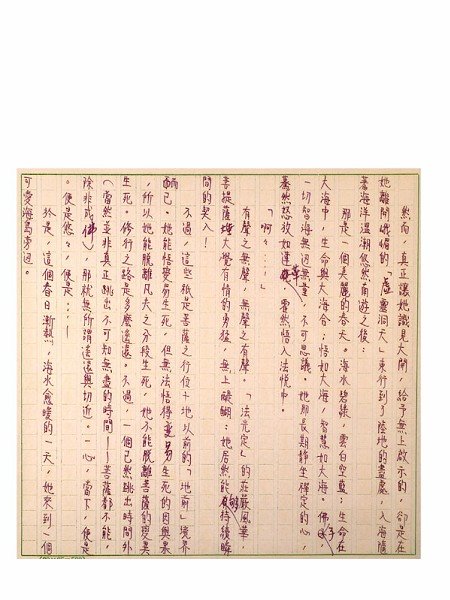 然而，真正讓她識見大開，給予無上啟示的，卻是在
她離開峨嵋的「虛靈洞天」東行到了陸地的盡處，入海隨
著海洋溫潮悠然南遊之後：
那是一個美麗的春天。海水碧綠，雲白空藍；生命在
大海中，生命與大海合；悟如大海，智慧如大海。佛曰，
一切智海無邊無量，不可思議。她那長期靜坐禪定的心，
驀然怒放如蓮，霍然悟入法悅中。
「啊々……！」
有聲之無聲，無聲之有聲。「法荒定」的莊嚴風華，
菩提薩埵大覺有情的勇猛，無上醍醐；她居然能夠持續瞬
間的契入！
不過，這些祇是菩薩之行位十地以前的「地前」境界
而已。她能悟變易生死，但無法悟得變易生死的因與果
，所以她能脫離凡夫之分段生死，她不能脫離菩薩的變異
生死。修行之路是多麼遙遠。不過，一個已然跳出時間外
（當然並非真正跳出不可知無盡的時間——菩薩都不能，
除非成佛），那就無所謂遙遠與切近。一心，當下，便是
。便是悠々，便是……！
於是，這個春日漸熱，海水愈暖的一天，她來到一個
可愛海島旁邊。